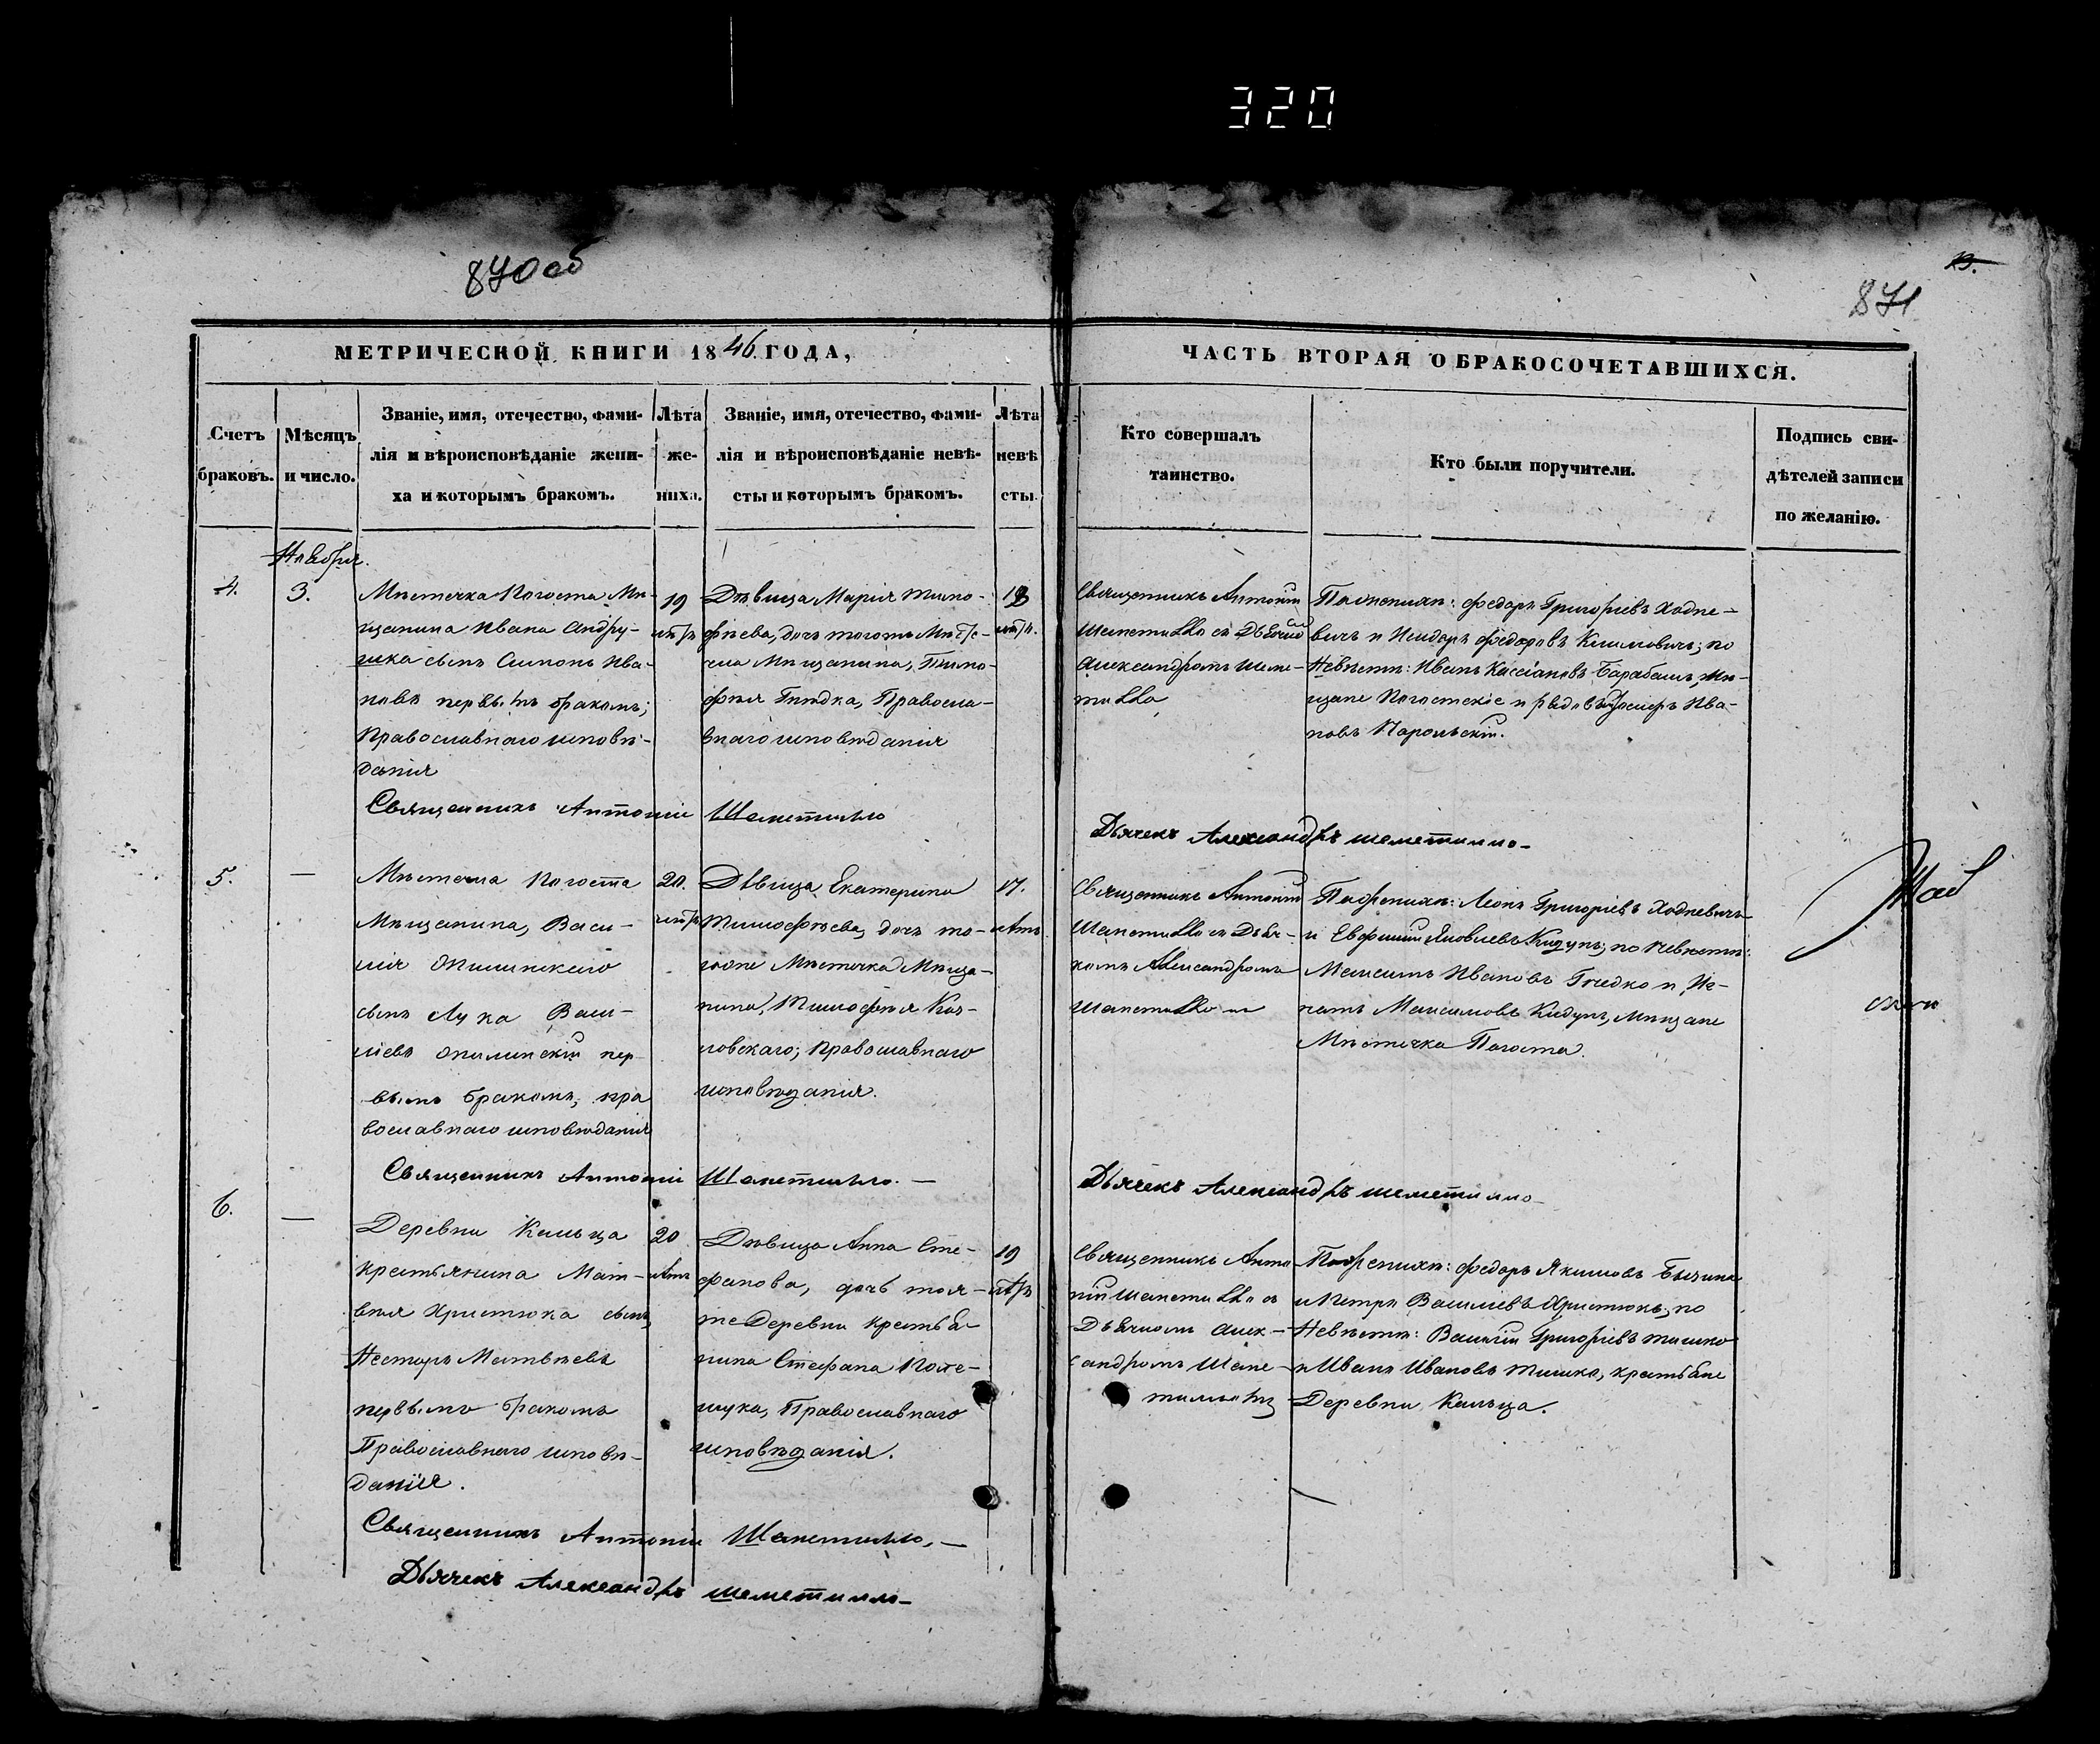 320
870 об
13.
871
МЕТРИЧЕСКОЙ КНИГИ 1846 ГОДА,
ЧАСТЬ ВТОРАЯ О БРАКОСОЧЕТАВШИХСЯ.
Счетъ
браковъ.
Мѣсяцъ
и число.
Званіе, имя, отечество, фами-
лія и вѣроисповѣданіе жени-
ха и которымъ бракомъ.
Лѣта
же-
ниха.
Званіе, имя, отечество, фами-
лія и вѣроисповѣданіе невѣ-
сты и которымъ бракомъ.
Лѣта
невѣ
сты.
Кто совершалъ
таинство.
Кто были поручители.
Подпись сви-
дѣтелей записи
по желанію.
Ноября.
4.
3.
Мѣстечка Погоста Мѣ-
щанина Ивана Андру-
шка сынъ Симонъ Ива-
новъ первымъ бракомъ;
Православнаго исповѣ-
данія
19
лѣтъ
Дѣвица Марія Тимо-
фѣева, дочь тогожъ Мѣсте-
чка Мѣщанина, Тимо-
фѣя Гнѣдка, Правосла-
внаго исповѣданія
18
лѣтъ.
Священникъ Антоній
Шеметилло съ Дьячкомъ
Александромъ Шеме-
тилло
По женихѣ: Федоръ Григорьевъ Ходке-
вичъ и Исидоръ Федоровъ Климовичъ; по
Невѣстѣ: Иванъ Кассіановъ Барабашъ, Мѣ-
щане Погостскіе и рядовый Іосифъ Ива-
новъ
Священникъ Антоній Шеметилло
Дьячекъ Александръ Шеметилло
5.
—
Мѣстечка Погоста
Мѣщанина, Васи-
лія Опилинскаго
сынъ Лука Васи-
ліевъ Опилинскій пер-
вымъ бракомъ, пра
вославнаго исповѣданія
20.
лѣтъ
Дѣвица Екатерина
Тимофѣева, дочь то-
гоже Мѣстечка Мѣща-
нина, Тимофѣя Коз-
ловскаго; Православнаго
исповѣданія.
17.
лѣтъ.
Священникъ Антоній
Шеметилло съ Дьяч-
комъ Александромъ
Шеметилло
По женихѣ: Леонъ Григорьевъ Ходкевичъ
и Евфимій Яковлевъ Кидунъ; по Невѣстѣ:
Максимъ Ивановъ Гнѣдко и Иг-
натъ Максимовъ Кидунъ, Мѣщане
Мѣстечка Погоста.
Священникъ Антоній Шеметилло. —
Дьячекъ Александръ Шеметилло
6.
—
Деревни Кальца
крестьянина Мат-
вѣя Христюка сынъ,
Несторъ Матвѣевъ
первымъ бракомъ
Православнаго исповѣ-
данія.
20
лѣтъ
Дѣвица Анна Сте-
фанова, дочь тоя-
же Деревни крестья-
нина Стефана
Православнаго
исповѣданія.
19
лѣтъ
Священникъ Анто
ній Шеметилло съ
Дьячкомъ Алек-
сандромъ Шеме-
По женихѣ: Федоръ Якимовъ
и Петръ Василіевъ Христюкъ; по
Невѣстѣ: Василій Григорьевъ Тишко
и Иванъ Ивановъ Тишко, крестьяне
Деревни Кальца.
Священникъ Антоній Шеметилло. —
Дьячекъ Александръ Шеметилло